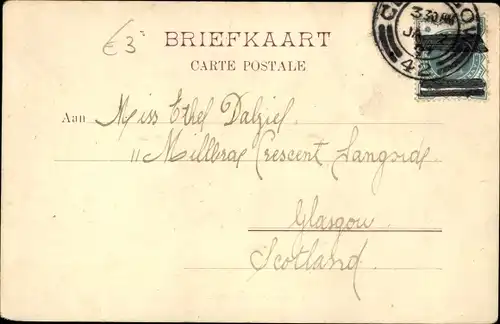 €3
BRIEFKAART
CARTE POSTALE
3.30 PM
JA
42
Aan Miss Ethel Dalziel
11 Millbrae Crescent Langside
Glasgow
Scotland